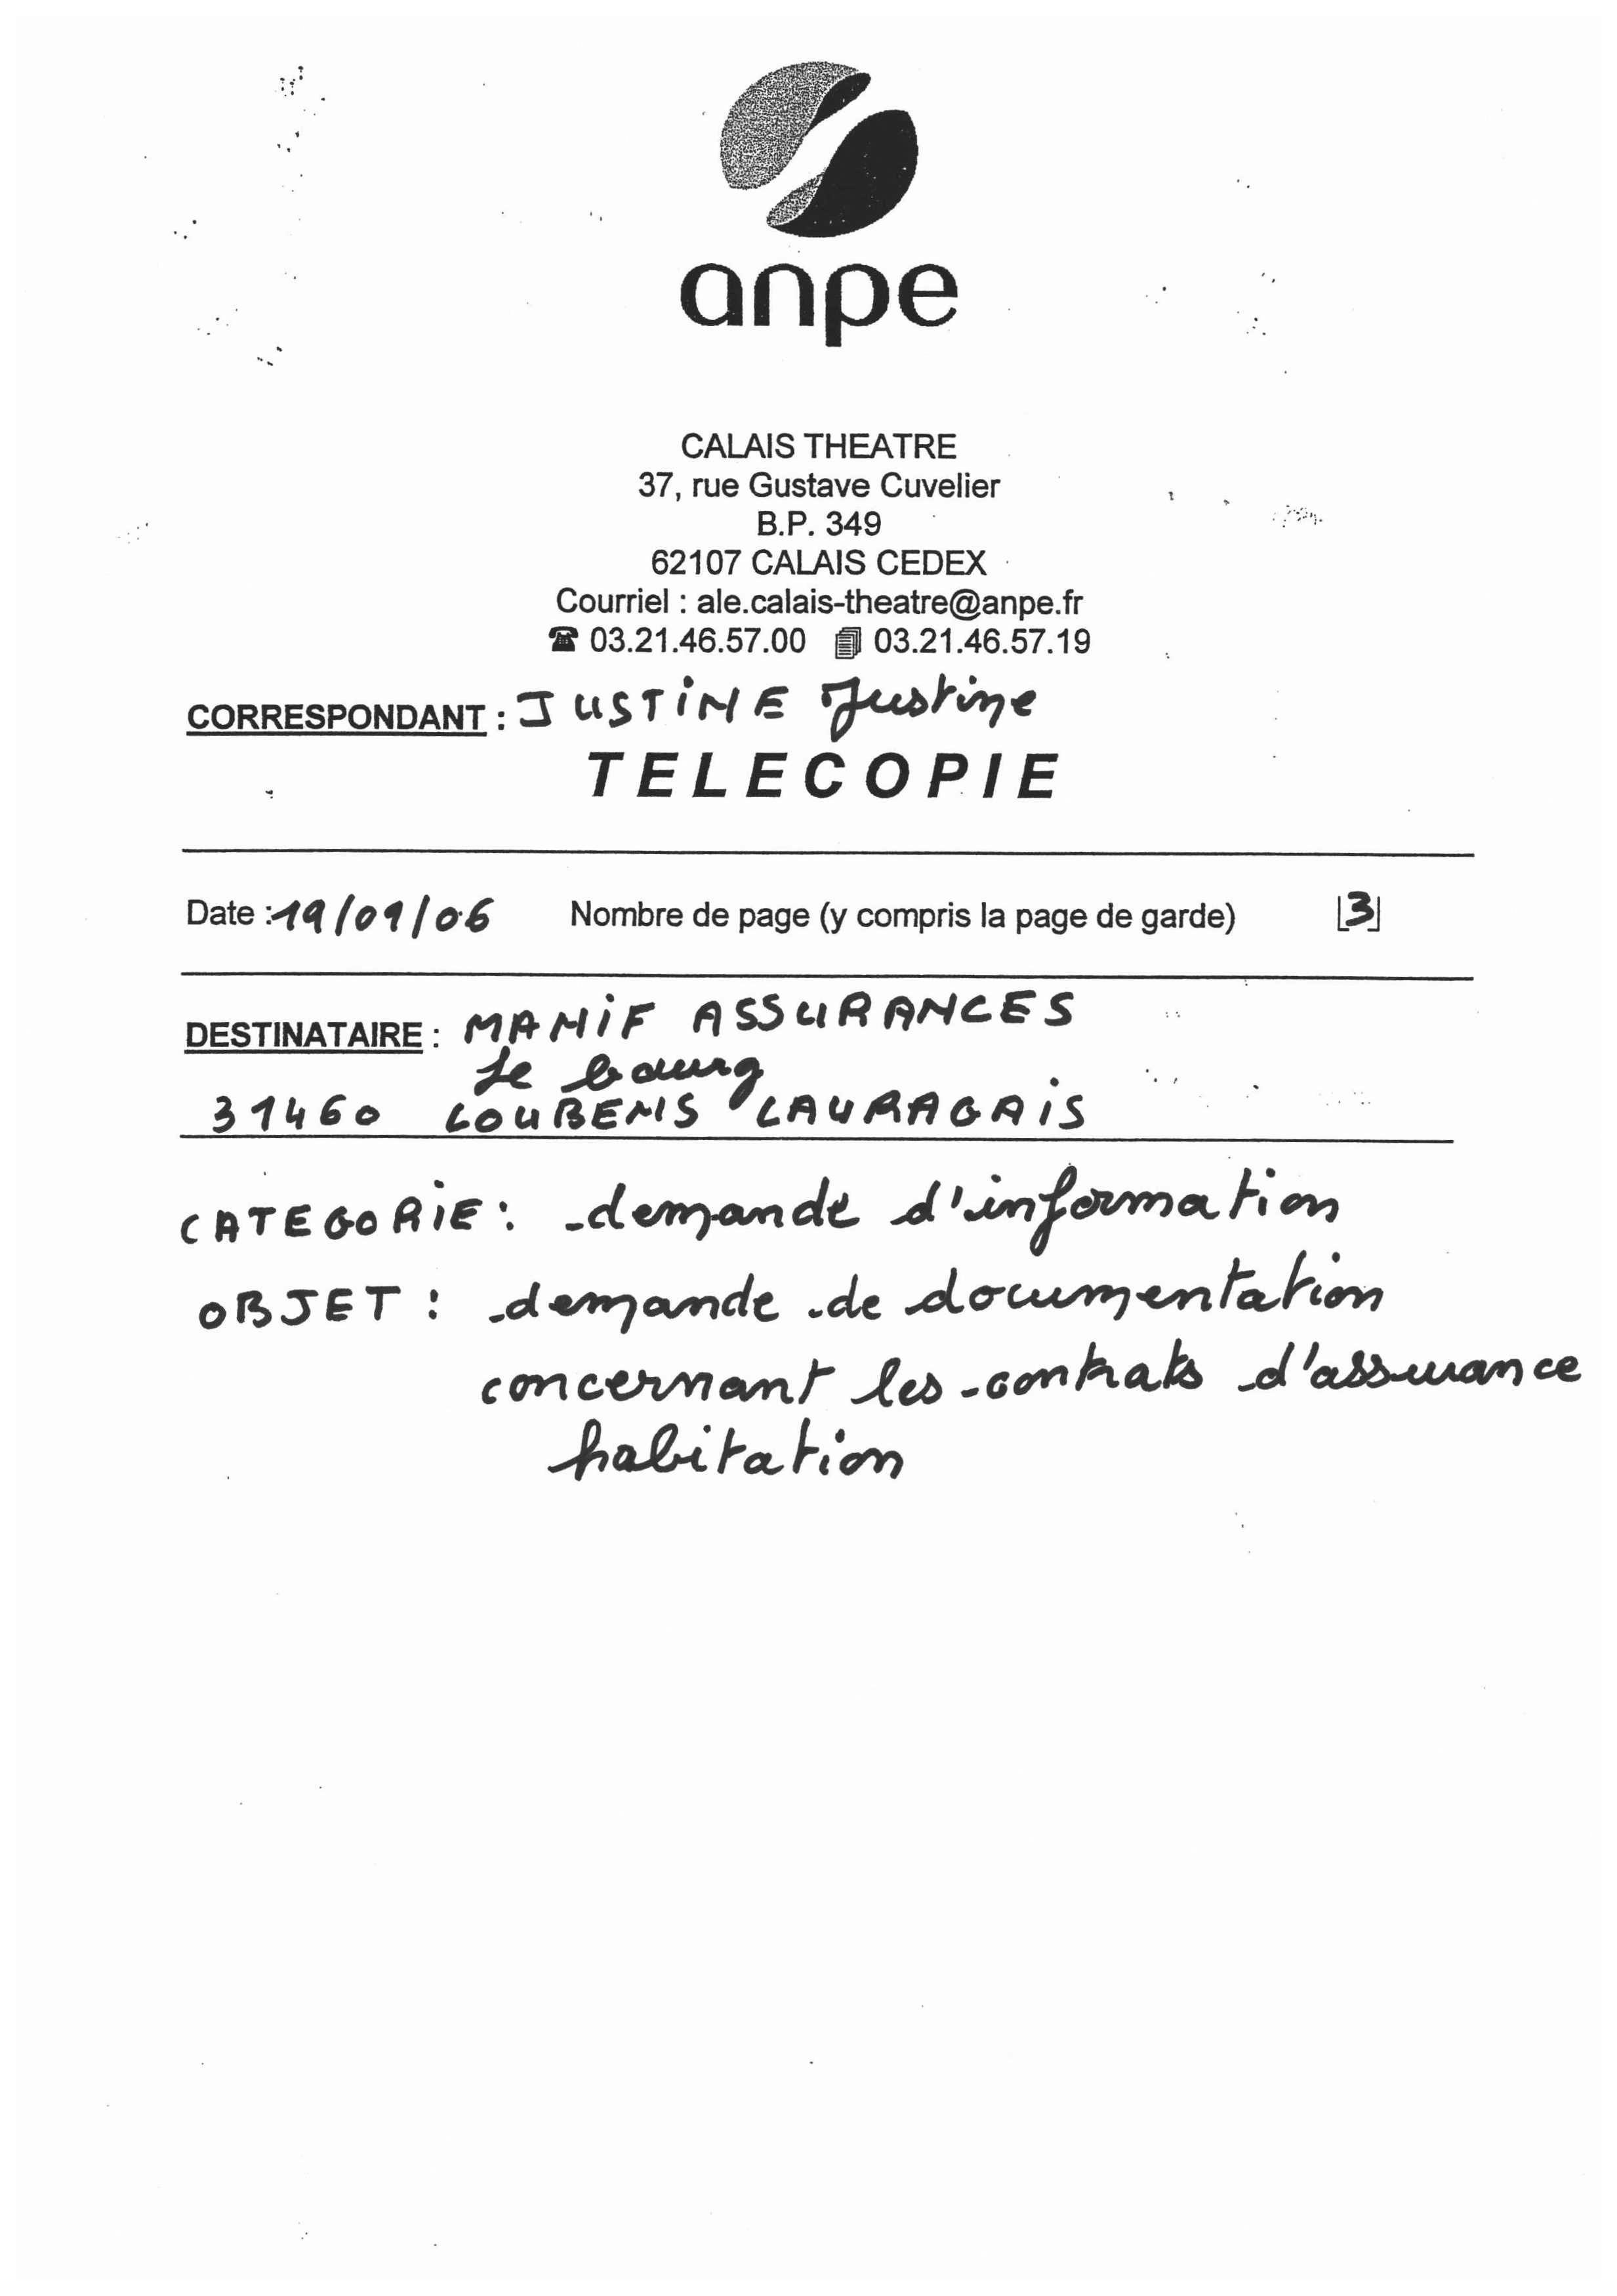 anpe
CALAIS THEATRE
37, rue Gustave Cuvelier
B.P. 349
62107 CALAIS CEDEX
Courriel : ale.calais-theatre@anpe.fr
☎ 03.21.46.57.00 03.21.46.57.19
CORRESPONDANT : JUSTINE Justine
TELECOPIE
Date : 19/01/06 Nombre de page (y compris la page de garde) |3|
DESTINATAIRE : MANIF ASSURANCES
Le bourg
31460 LOUBENS LAURAGAIS
CATEGORIE : demande d'information
OBJET : demande de documentation
concernant les contrats d'assurance
habitation